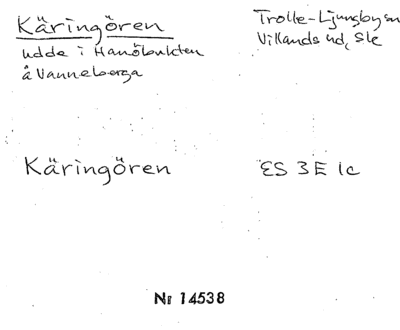 Käringören
udde i Hanöbukten
å Vanneberga
Trolle-Ljungby sn
Villands hd, Ske
Käringören
ES 3E 1c
Nr 14538